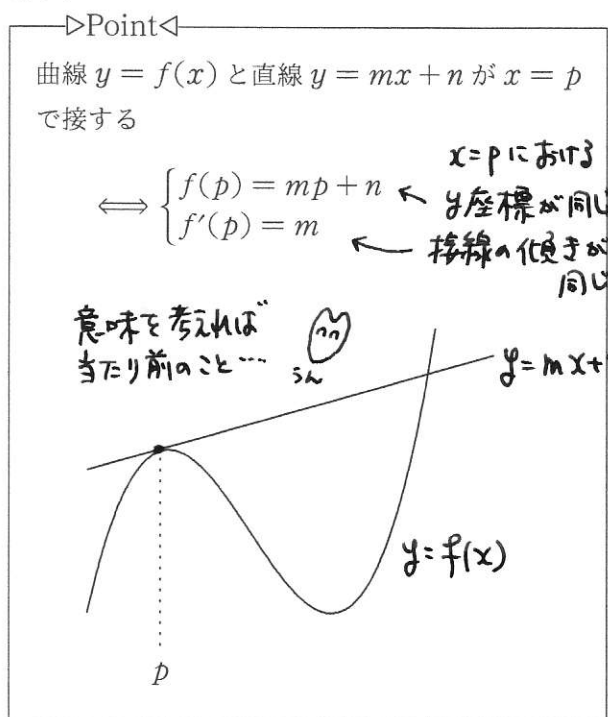 ▷Point◁
曲線 y = f(x) と直線 y = mx + n が x = p
で接する
⟺ { f(p) = mp + n
f′(p) = m
x = p における
← y座標が同じ
← 接線の傾きが
同じ
意味を考えれば
当たり前のこと…
うん
y = mx +
y = f(x)
p